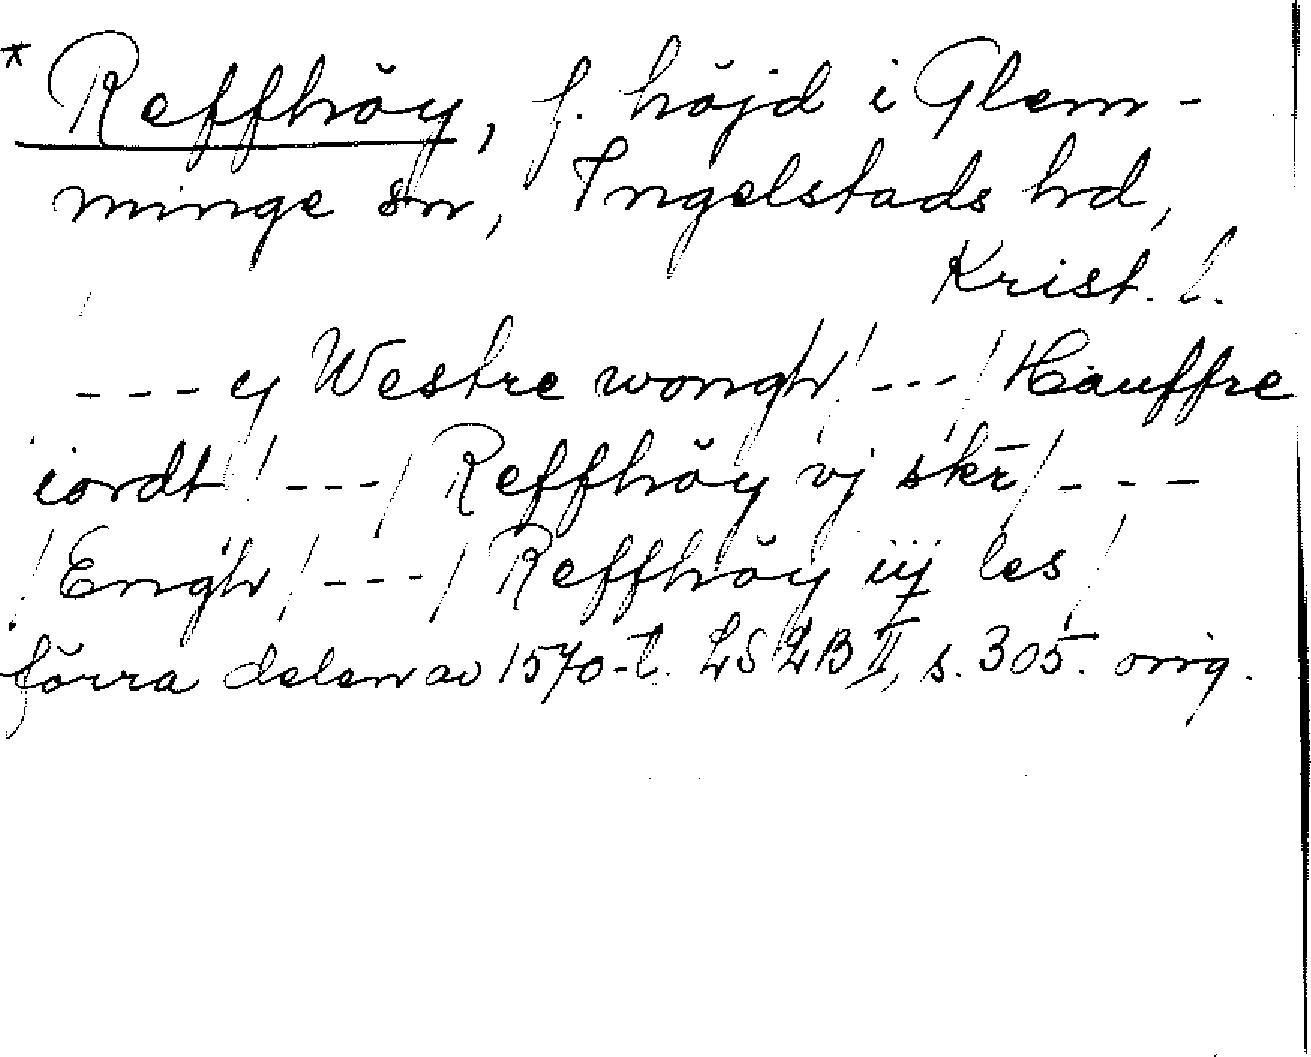 * Reffhöy, f. höjd i Glem-
minge sn, Ingelstads hd,
Krist. l.
--- y Westre wongh / --- / Hauffre
iordt / --- / Reffhöy vj skr̄ / ---
/ Engh / --- / Reffhöy iij les /
förra delen av 1570-t. LSLB II, s. 305. orig.